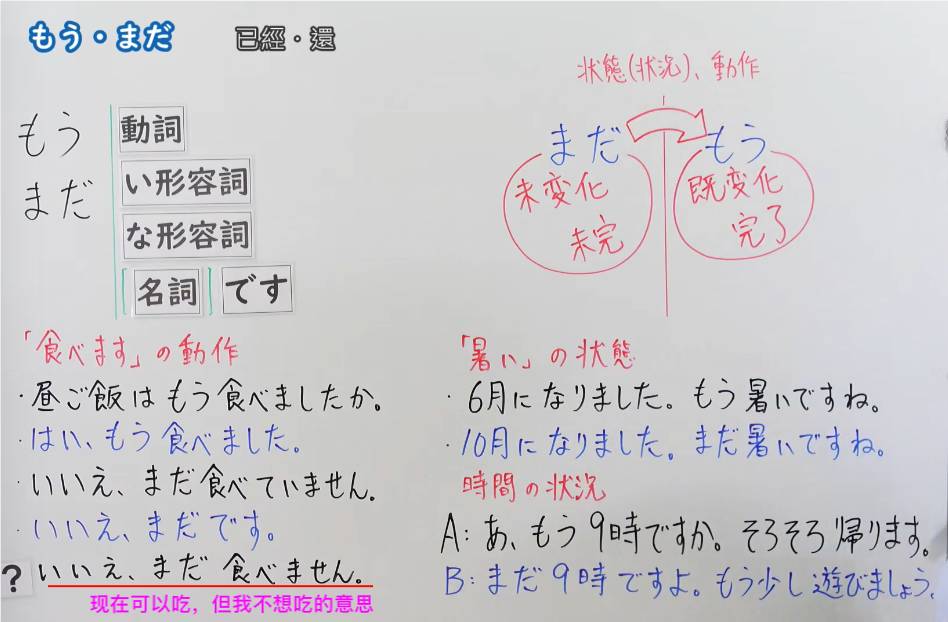 もう・まだ 已經・還
もう
まだ
動詞
い形容詞
な形容詞
[名詞]です
状態(状況)、動作
まだ
もう
未変化
未完
既変化
完了
「食べます」の動作
・昼ご飯はもう食べましたか。
・はい、もう食べました。
・いいえ、まだ食べていません。
・いいえ、まだです。
? いいえ、まだ食べません。
现在可以吃，但我不想吃的意思
「暑い」の状態
・6月になりました。もう暑いですね。
・10月になりました。まだ暑いですね。
時間の状況
A:あ、もう9時ですか。そろそろ帰ります。
B:まだ9時ですよ。もう少し遊びましょう。